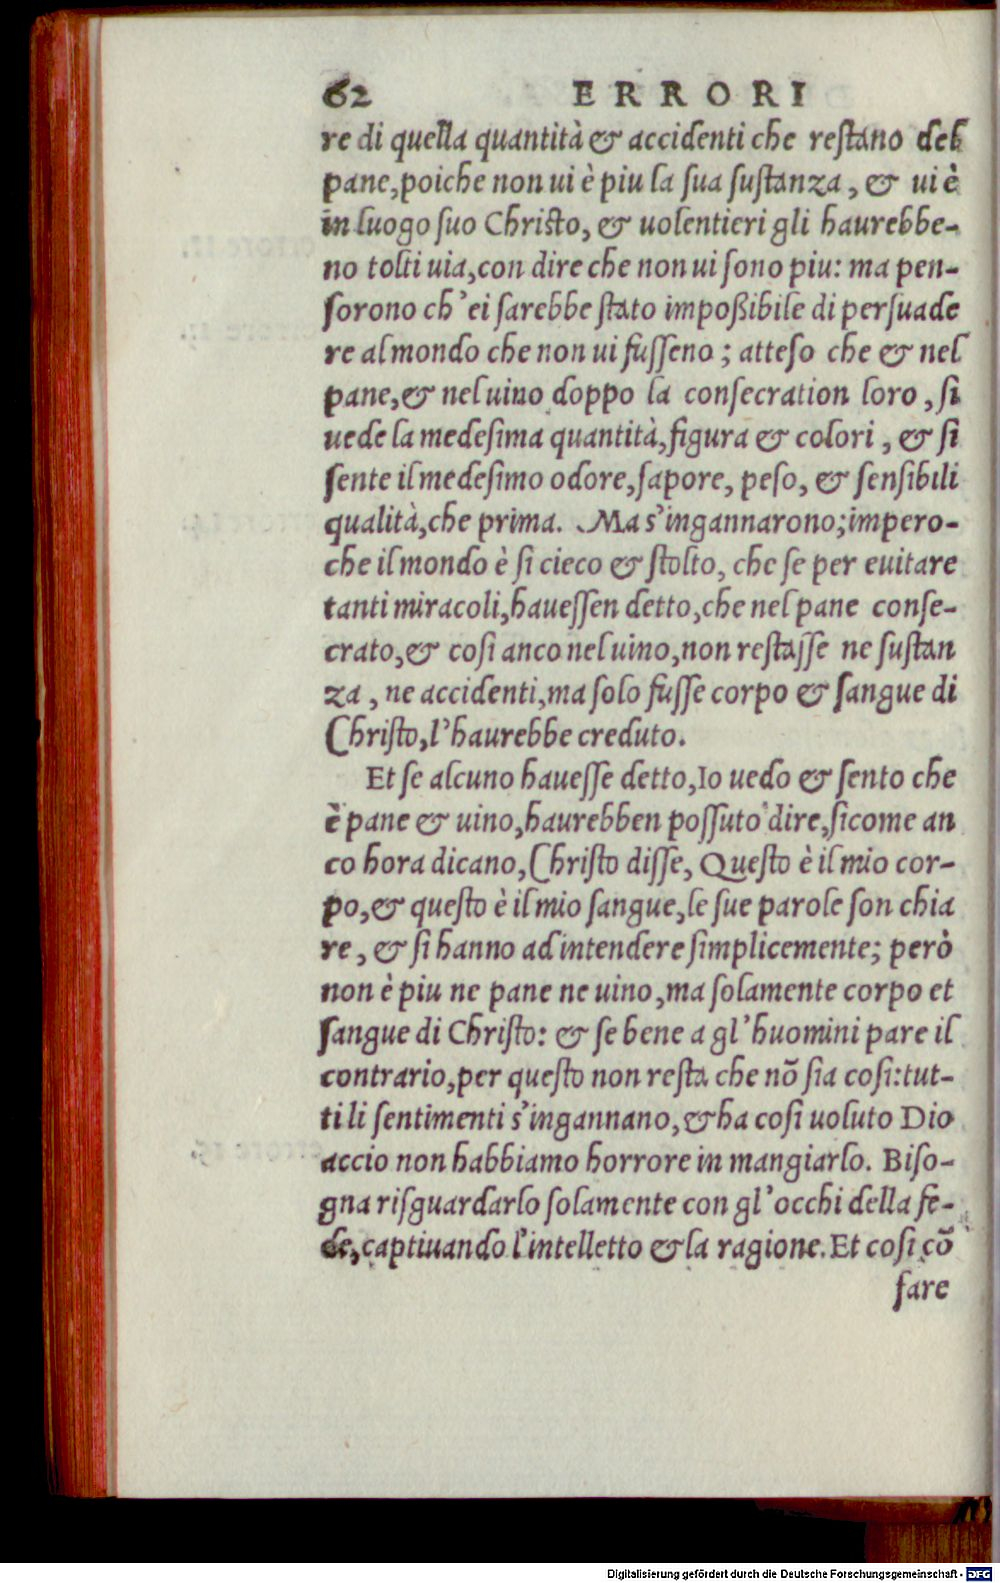 62 ERRORI
re di quella quantità & accidenti che reſtano del
pane, poiche non ui è piu la ſua ſuſtanza, & ui è
in luogo ſuo Chriſto, & uolentieri gli haurebbe-
no tolti uia, con dire che non ui ſono piu: ma pen-
ſorono ch'ei ſarebbe ſtato impoßibile di perſuade
re al mondo che non ui fuſſeno; atteſo che & nel
pane, & nel uino doppo la conſecration loro, ſi
uede la medeſima quantità, figura & colori, & ſi
ſente il medeſimo odore, ſapore, peſo, & ſenſibili
qualità, che prima. Ma s'ingannarono; impero-
che il mondo è ſi cieco & ſtolto, che ſe per euitare
tanti miracoli, haueſſen detto, che nel pane conſe-
crato, & coſi anco nel uino, non reſtaſſe ne ſuſtan
za, ne accidenti, ma ſolo fuſſe corpo & ſangue di
Chriſto, l'haurebbe creduto.
Et ſe alcuno haueſſe detto, Io uedo & ſento che
è pane & uino, haurebben poſſuto dire, ſicome an
co hora dicano, Chriſto diſſe, Queſto è il mio cor-
po, & queſto è il mio ſangue, le ſue parole ſon chia
re, & ſi hanno ad intendere ſimplicemente; però
non è piu ne pane ne uino, ma ſolamente corpo et
ſangue di Chriſto: & ſe bene a gl'huomini pare il
contrario, per queſto non reſta che nõ ſia coſi: tut-
ti li ſentimenti s'ingannano, & ha coſi uoluto Dio
accio non habbiamo horrore in mangiarlo. Biſo-
gna riſguardarlo ſolamente con gl'occhi della fe-
de, captiuando l'intelletto & la ragione. Et coſi cõ
fare
Digitalisierung gefördert durch die Deutsche Forschungsgemeinschaft - DFG